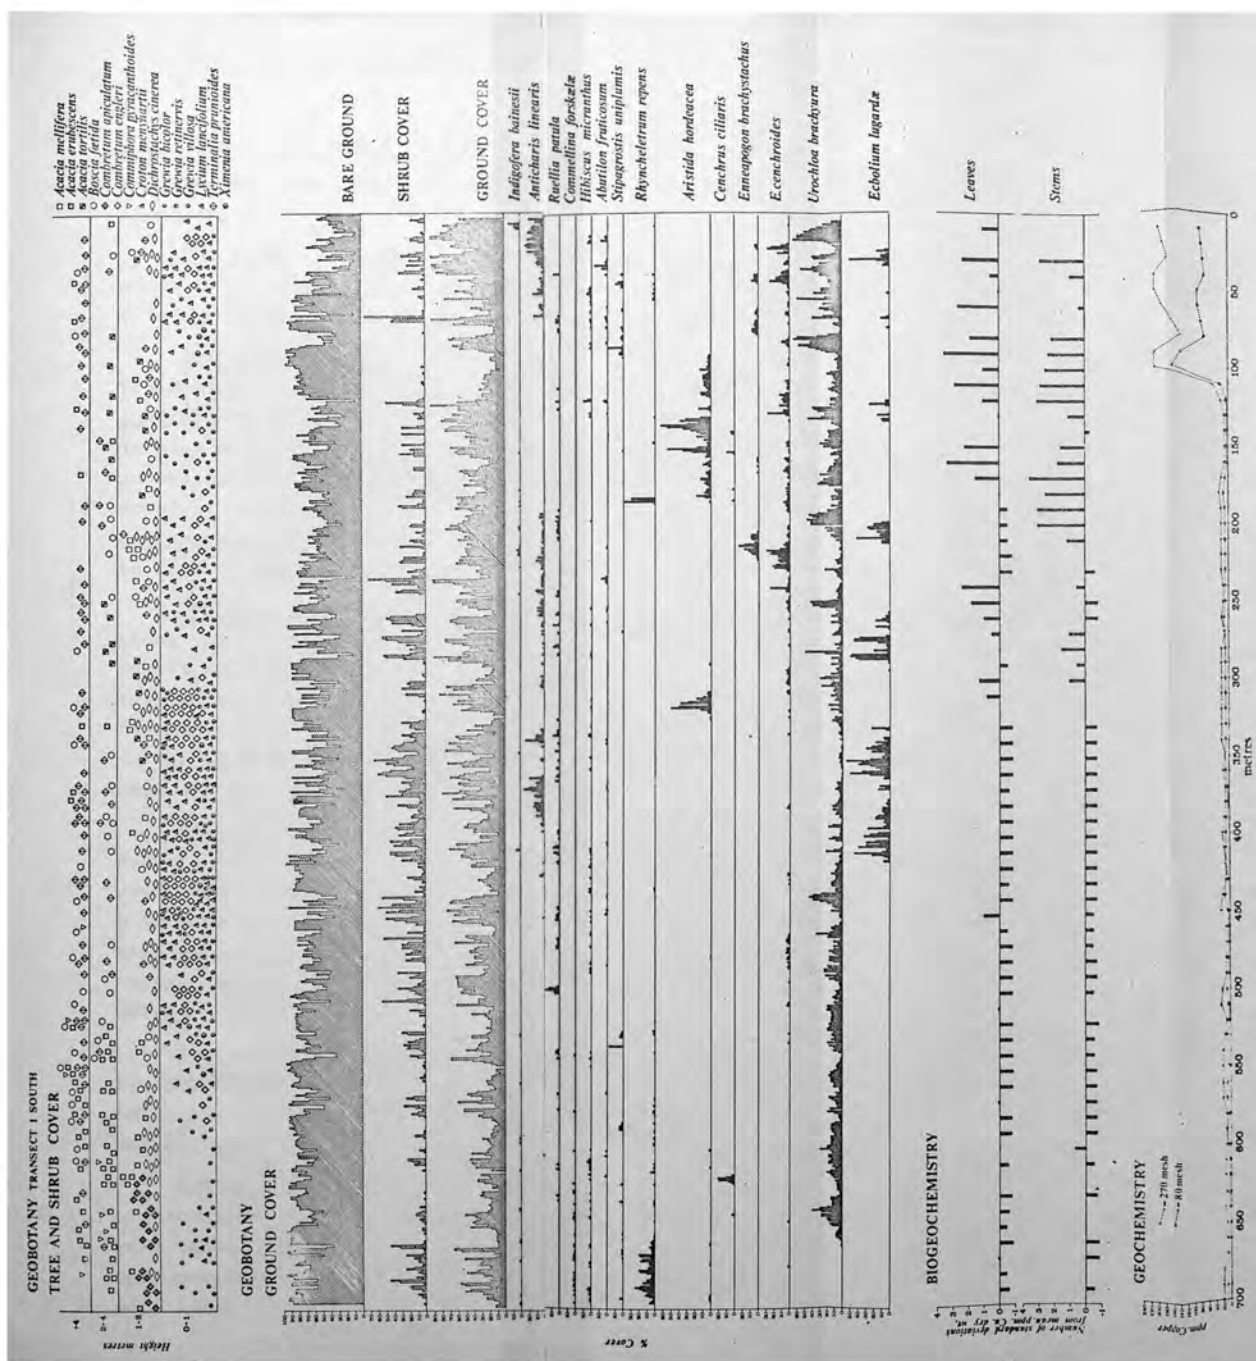 GEOBOTANY TRANSECT 1 SOUTH
TREE AND SHRUB COVER
Acacia mellifera
Acacia erubescens
Acacia tortilis
Boscia foetida
Combretum apiculatum
Combretum engleri
Commiphora pyracanthoides
Croton menyhartii
Dichrostachys cinerea
Grewia bicolor
Grewia retinervis
Grewia villosa
Lycium lancifolium
Terminalia prunioides
Ximenia americana
+4
2-4
1-2
0-1
Height metres
GEOBOTANY
GROUND COVER
BARE GROUND
SHRUB COVER
GROUND COVER
Indigofera bainesii
Anticharis linearis
Ruellia patula
Commellina forskælæ
Hibiscus micranthus
Abutilon fruticosum
Stipagrostis uniplumis
Rhyncheletrum repens
Aristida hordeacea
Cenchrus ciliaris
Enneapogon brachystachus
E.cenchroides
Urochloa brachyura
Ecbolium lugardæ
% Cover
BIOGEOCHEMISTRY
Leaves
4
3
2
1
0
-1
Stems
4
3
2
1
0
-1
Number of standard deviations
from mean ppm. Cu. dry wt.
GEOCHEMISTRY
270 mesh
80 mesh
ppm. Copper
700
650
600
550
500
450
400
350
300
250
200
150
100
50
0
metres